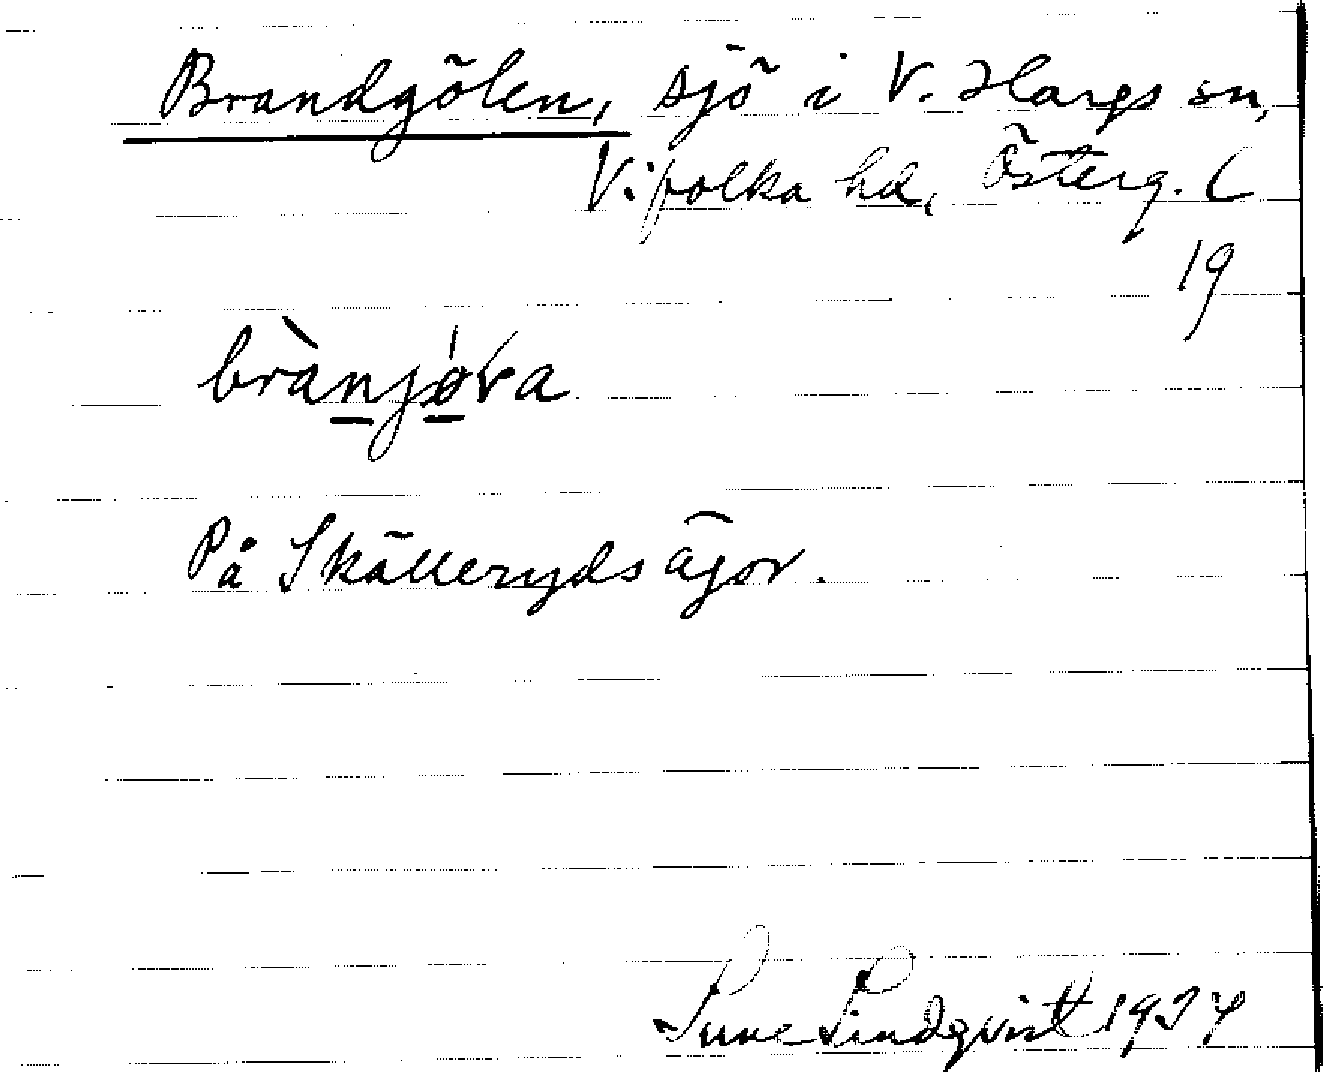 Brandgölen, sjö i V. Hargs sn,
Vifolka hd, Österg. l
19
brànjø̀va
På Skälleryds ägor.
Sune Lindqvist 1934